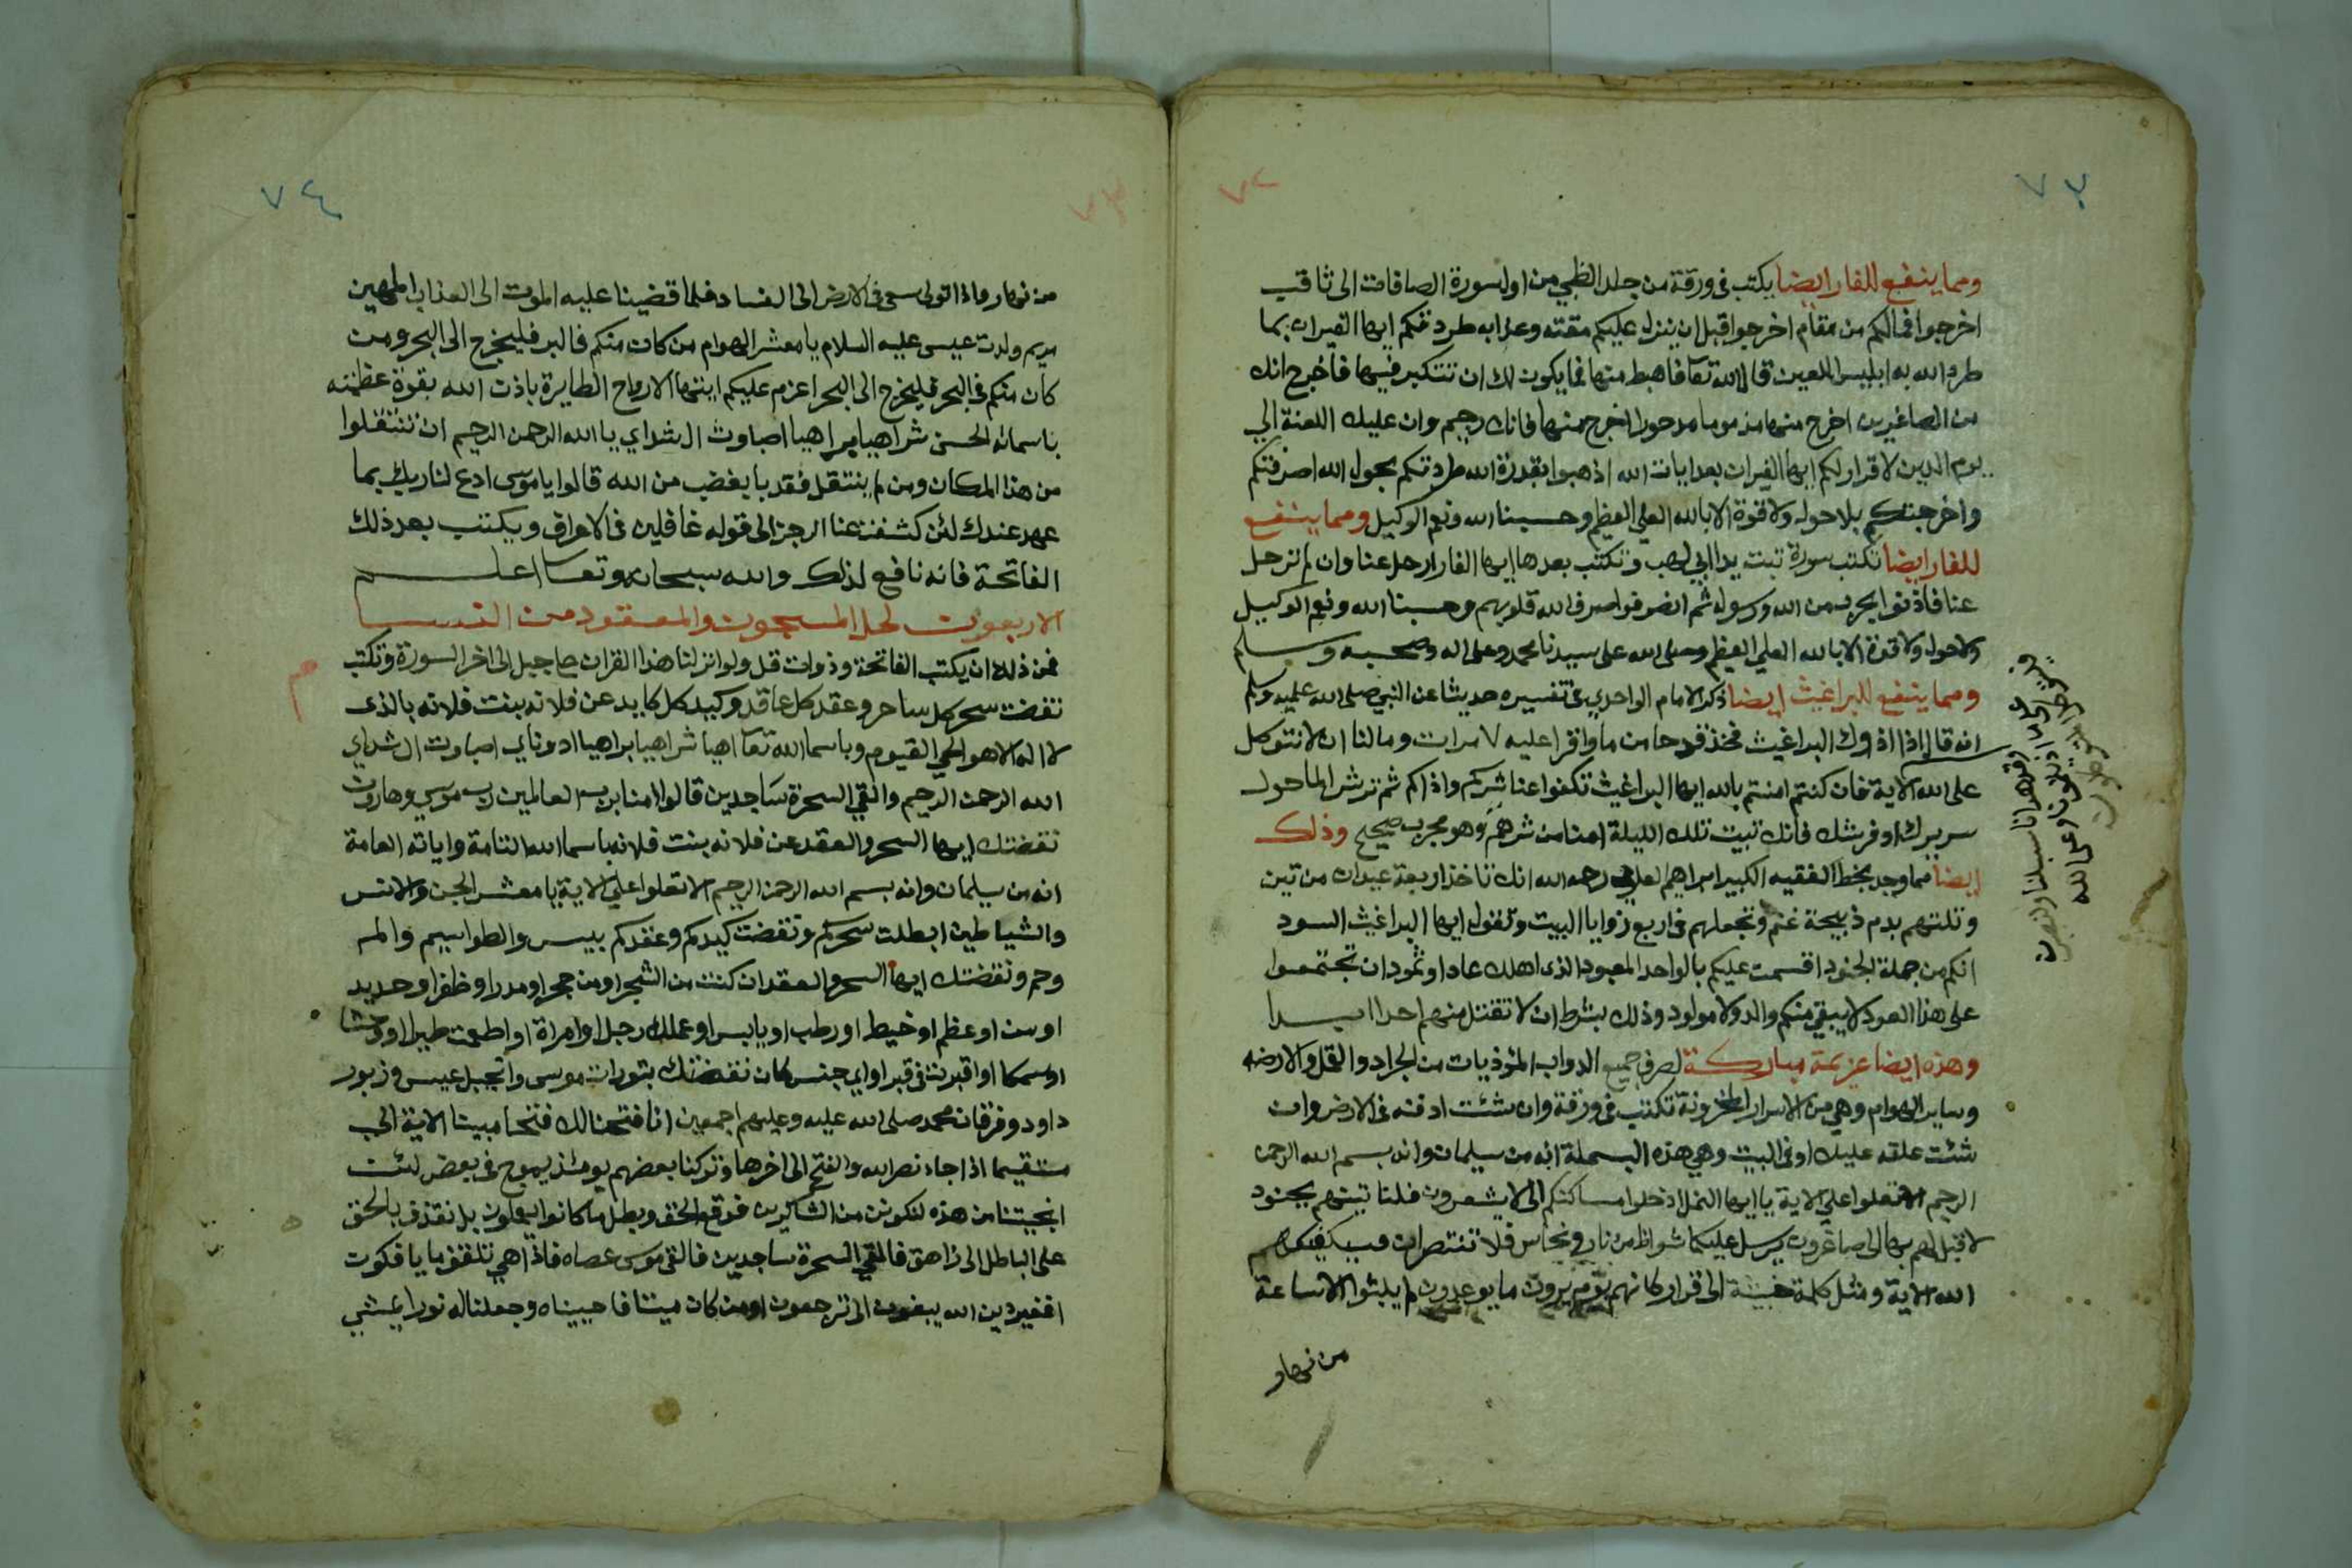 ٧٣
٧٢
ومما ينفع للفار ايضا يكتب فى ورقة من جلد الظبي من اول سورة الصافات الى ثاقب
اخرجوا فمالكم من مقام اخرجوا قبل ان ينزل عليكم مقته وعذابه طردتكم ايها الفيران بما
طرد الله به ابليس اللعين قال الله تعا فاهبط منها فما يكون لك ان تتكبر فيها فاخرج انك
من الصاغرين اخرج منها مذموما مدحورا اخرج منها فانك رجيم وان عليك اللعنة الي
يوم الدين لا قرار لكم ايها الفيران بعد ايات الله اذهبوا بقدرة الله طردتكم بحول الله اصرفتكم
واخرجتكم بلا حول ولا قوة الا بالله العلي العظيم وحسبنا الله ونعم الوكيل ومما ينفع
للفار ايضا تكتب سورة تبت يدا ابي لهب وتكتب بعدها ايها الفار ارحل عنا وان لم ترحل
عنا فاذنوا بحرب من الله ورسوله ثم انصرفوا صرف الله قلوبهم وحسبنا الله ونعم الوكيل
ولا حول ولا قوة الا بالله العلي العظيم وصلى الله على سيدنا محمد وعلى اله وصحبه وسلم
ومما ينفع للبراغيث ايضا ذكر الامام الواحدي فى تفسيره حديثا عن النبي صلى الله عليه وسلم
انه قال اذا اذوك البراغيث فخذ قدحا من ما واقرا عليه ٧ مرات وما لنا ان لا نتوكل
على الله الاية فان كنتم امنتم بالله ايها البراغيث تكفوا عنا شركم واذاكم ثم ترش الما حول
سريرك او فرشك فانك تبيت تلك الليلة امنا من شرهم وهو مجرب صحيح وذلك
ايضا مما وجد بخط الفقيه الكبير ابراهيم العلوي رحمه الله انك تاخذ اربعة عيدان من تين
وتلتهم بدم ذبيحة غنم وتجعلهم فى اربع زوايا البيت وتقول ايها البراغيث السود
انكم من جملة الجنود اقسمت عليكم بالواحد المعبود الذى اهلك عادا وثمود ان تجتمعوا
على هذا العود لا يبقى منكم والد ولا مولود وذلك بشرط ان لا تقتل منهم احدا ابدا
وهذه ايضا عزيمة مباركة لصرف جميع الدواب المؤذيات من الجراد والقمل والارضه
وساير الهوام وهي من الاسرار المخزونة تكتب فى ورقة وان شئت ادفنه فى الارض وان
شئت علقه عليك او فى البيت وهي هذه البسملة انه من سليمان وانه بسم الله الرحمن
الرحيم الا تعلوا علي الاية يا ايها النمل ادخلوا مساكنكم الى لا يشعرون فلناتينهم بجنود
لا قبل لهم بها الى صاغرون يرسل عليكما شواظ من نار ونحاس فلا تنتصران فسيكفيكهم
الله الاية ومثل كلمة خبيثة الى قرار كانهم يوم يرون ما يوعدون لم يلبثوا الا ساعة
من نهار
وقد هدانا سبلنا ولنصبرن
على ما اذيتمونا وعلى الله
٧٤
٧٣
من نهار واذا تولى سعى فى الارض الى الفساد فلما قضينا عليه الموت الى العذاب المهين
مريم ولدت عيسى عليه السلام يا معشر الهوام من كان منكم فى البر فليخرج الى البحر ومن
كان منكم فى البحر فليخرج الى البحر اعزم عليكم ايتها الارواح الطايرة باذن الله بقوة عظمته
باسمائه الحسنى شراهيا براهيا اصباوث ال شداي يا الله الرحمن الرحيم ان تنتقلوا
من هذا المكان ومن لم ينتقل فقد با بغضب من الله قالوا يا موسى ادع لنا ربك بما
عهد عندك لئن كشفت عنا الرجز الى قوله غافلين فى الاعراف ويكتب بعد ذلك
الفاتحة فانه نافع لذلك والله سبحانه وتعا اعلم
الاربعون لحل المسجون والمعقود من النسا
فمن ذلك ان يكتب الفاتحة وذوات قل ولو انزلنا هذا القران على جبل الى اخر السورة وتكتب
م
نقضت سحر كل ساحر وعقد كل عاقد وكيد كل كايد عن فلانه بنت فلانه بالذى
لا اله الا هو الحي القيوم وباسما الله تعا اهيا شراهيا براهيا ادوناي اصباوت ال شداي
الله الرحمن الرحيم والقي السحرة ساجدين قالوا امنا برب العالمين رب موسي وهارون
نقضتك ايها السحر والعقد عن فلانه بنت فلانه باسما الله التامة واياته العامة
انه من سليمان وانه بسم الله الرحمن الرحيم الا تعلوا علي الاية يا معشر الجن والانس
والشياطين ابطلت سحركم ونقضت كيدكم وعقدكم بيس والطواسيم والم
وحم ونقضتك ايها السحر والعقد ان كنت من الشجر او من حجر او مدر او ظفر او حديد
او سن او عظم او خيط او رطب او يابس او عملك رجل او امراة او اطعمت طيرا او وحشا
او سمكا او اقبرت فى قبر او اي جنس كان نقضتك بتورات موسى وانجيل عيسى وزبور
داود وفرقان محمد صلى الله عليه وعليهم اجمعين انا فتحنا لك فتحا مبينا الاية الى
مستقيما اذا جاء نصر الله والفتح الى اخرها وتركنا بعضهم يومئذ يموج فى بعض لئن
انجيتنا من هذه لنكونن من الشاكرين فوقع الحق وبطل ما كانوا يعملون بل نقذف بالحق
على الباطل الى زاهق فالقي السحرة ساجدين فالقى موسى عصاه فاذا هي تلقف ما يافكون
افغير دين الله يبغون الى ترجعون اومن كان ميتا فاحييناه وجعلنا له نورا يمشي